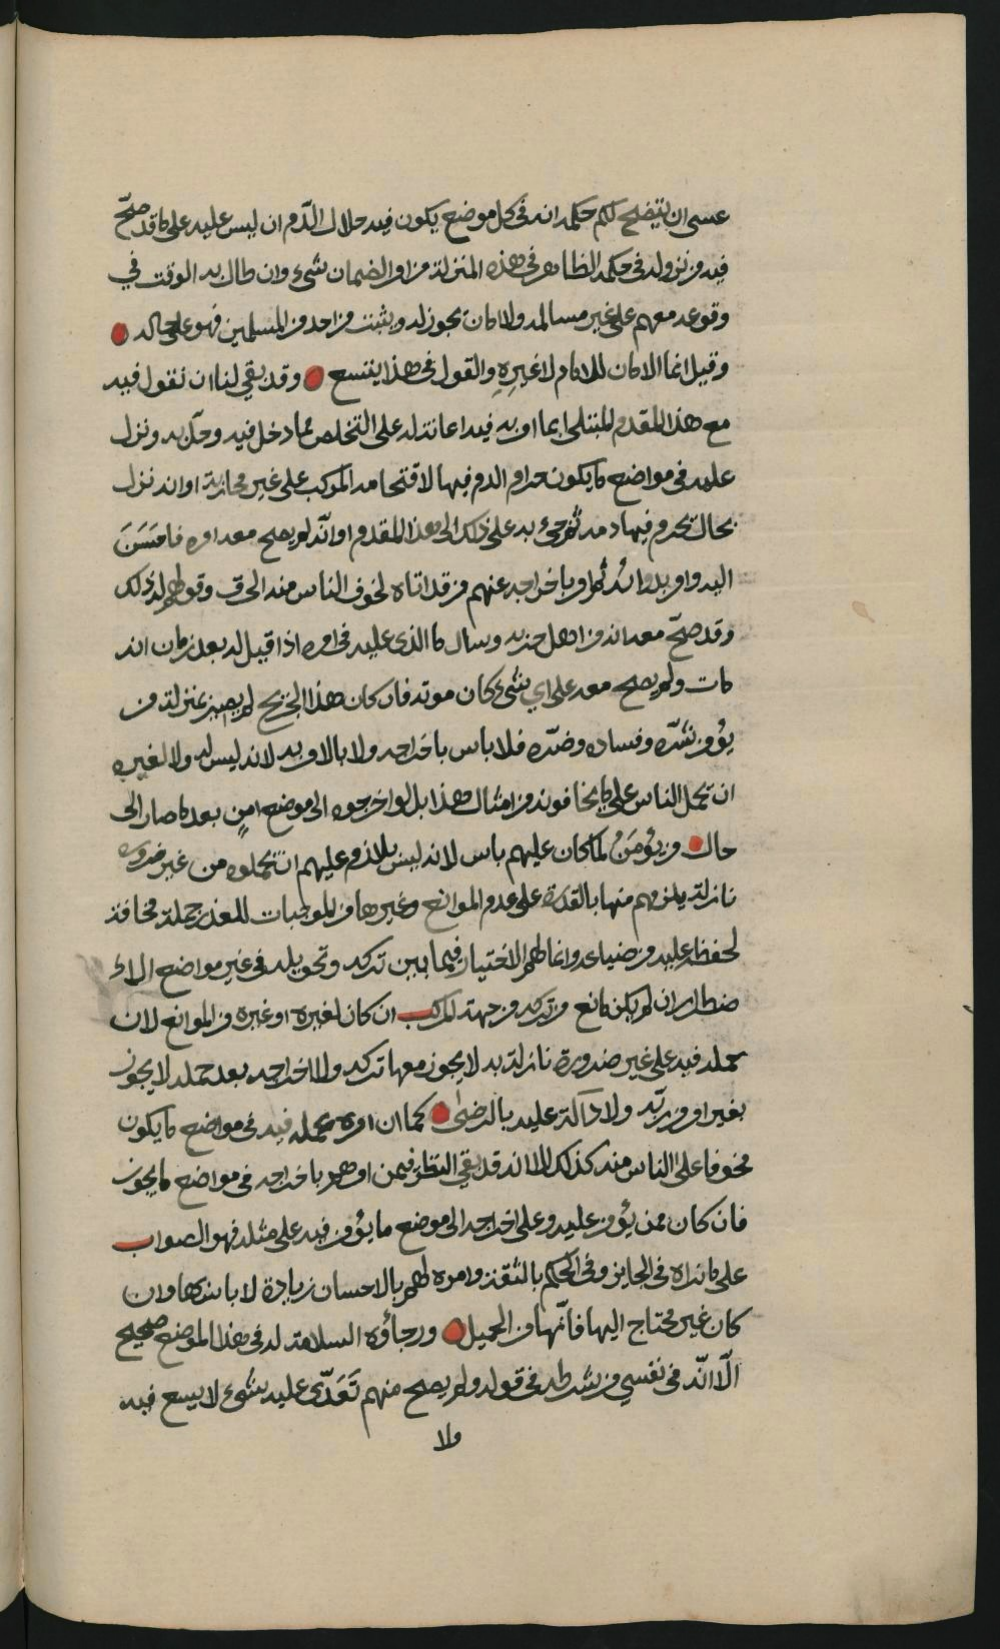 عسى ان يتضح لكم حكمه انه في كل موضع يكون فيه حلال الدّم ان ليس عليه على ما قد صحّ
فيه من نزوله في حكمه الظاهر في هذه المنزلة من امر الضمان شيء وان طال به الوقت في
وقوعه معهم على غير مسالمة ولا امان يجوز له ويثبت من احد من المسلمين فهو على حاله
وقيل انما الامان للامام لا غيرِهِ والقول في هذا يتسع وقد بقي لنا ان نقول فيه
مع هذا المقدم المبتلى بما امر به فيه اعانة له على التخلص مما دخل فيه وحلّ به ونزل
عليه في مواضع ما يكون حرام الدم فيها لاقتحامه المركب على غير محاربة او انه نزل
بحال يحرم فيها دمه ثم جيء به على ذلك الى هذا المقدم او انّه لم يصح معه امره فامسَنَ
اليه وامر بدوائه ثم امر باخراجه عنهم من قد اتاه لخوف الناس منه الحرق وقولهم له ذلك
وقد صحّ معه انه من اهل حربه وسال ما الذي عليه في امره اذا قيل له بعد زمان انه
مات ولم يصح معه على اي شيء كان موته فان كان هذا الجريح لم يصر بمنزلة من
يؤمن شرّه وفساده وضرّه فلا باس باخراجه ولا بالامر به لانه ليس له ولا لغيره
ان يحمل الناس على ما يخافونه من امثال هذا بل لو اخرجوه الى موضع امنٍ بعد ما صار الى
حال من يؤمَنُ لما كان عليهم باس لانه ليس بلازم عليهم ان يحملوه من غير ضرورة
نازلة يلزمهم منها بالقدرة على عدم الموانع وغيرها من الموجبات للعذر جملة مخافة
لحفظه عليه من ضياعه وانما لهم الاختيار فيما بين تركه وتحويله في غير مواضع الا
ضطرار ان لم يكن مانع من تركه من جهة المركب ان كان لغيره او غيره من الموانع لان
حمله فيه على غير ضرورة نازلة به لا يجوز معها تركه ولا اخراجه بعد حمله لا يجوز
بغير امر من ربّه ولا دلالة عليه بالرضى كما ان امره بحمله فيه في مواضع ما يكون
مخوفا على الناس منه كذلك الا انه قد بقي النظر فيمن امرهم باخراجه في مواضع ما يجوز
فان كان ممن يؤمن عليه وعلى اخراجه الى موضع ما يؤمن فيه على مثله فهو الصواب
على ما نراه في الجايز وفي الحكم بالثقة وامره لهم بالاحسان زيادة لا باس بها وان
كان غير محتاج اليها فانّها من الجميل ورجاؤه السلامة له في هذا الموضع صحيح
الّا انّه في نفسي من شرطه في قوله ولم يصح منهم تَعَدّى عليه بشيء لا يسع فيه
ولا